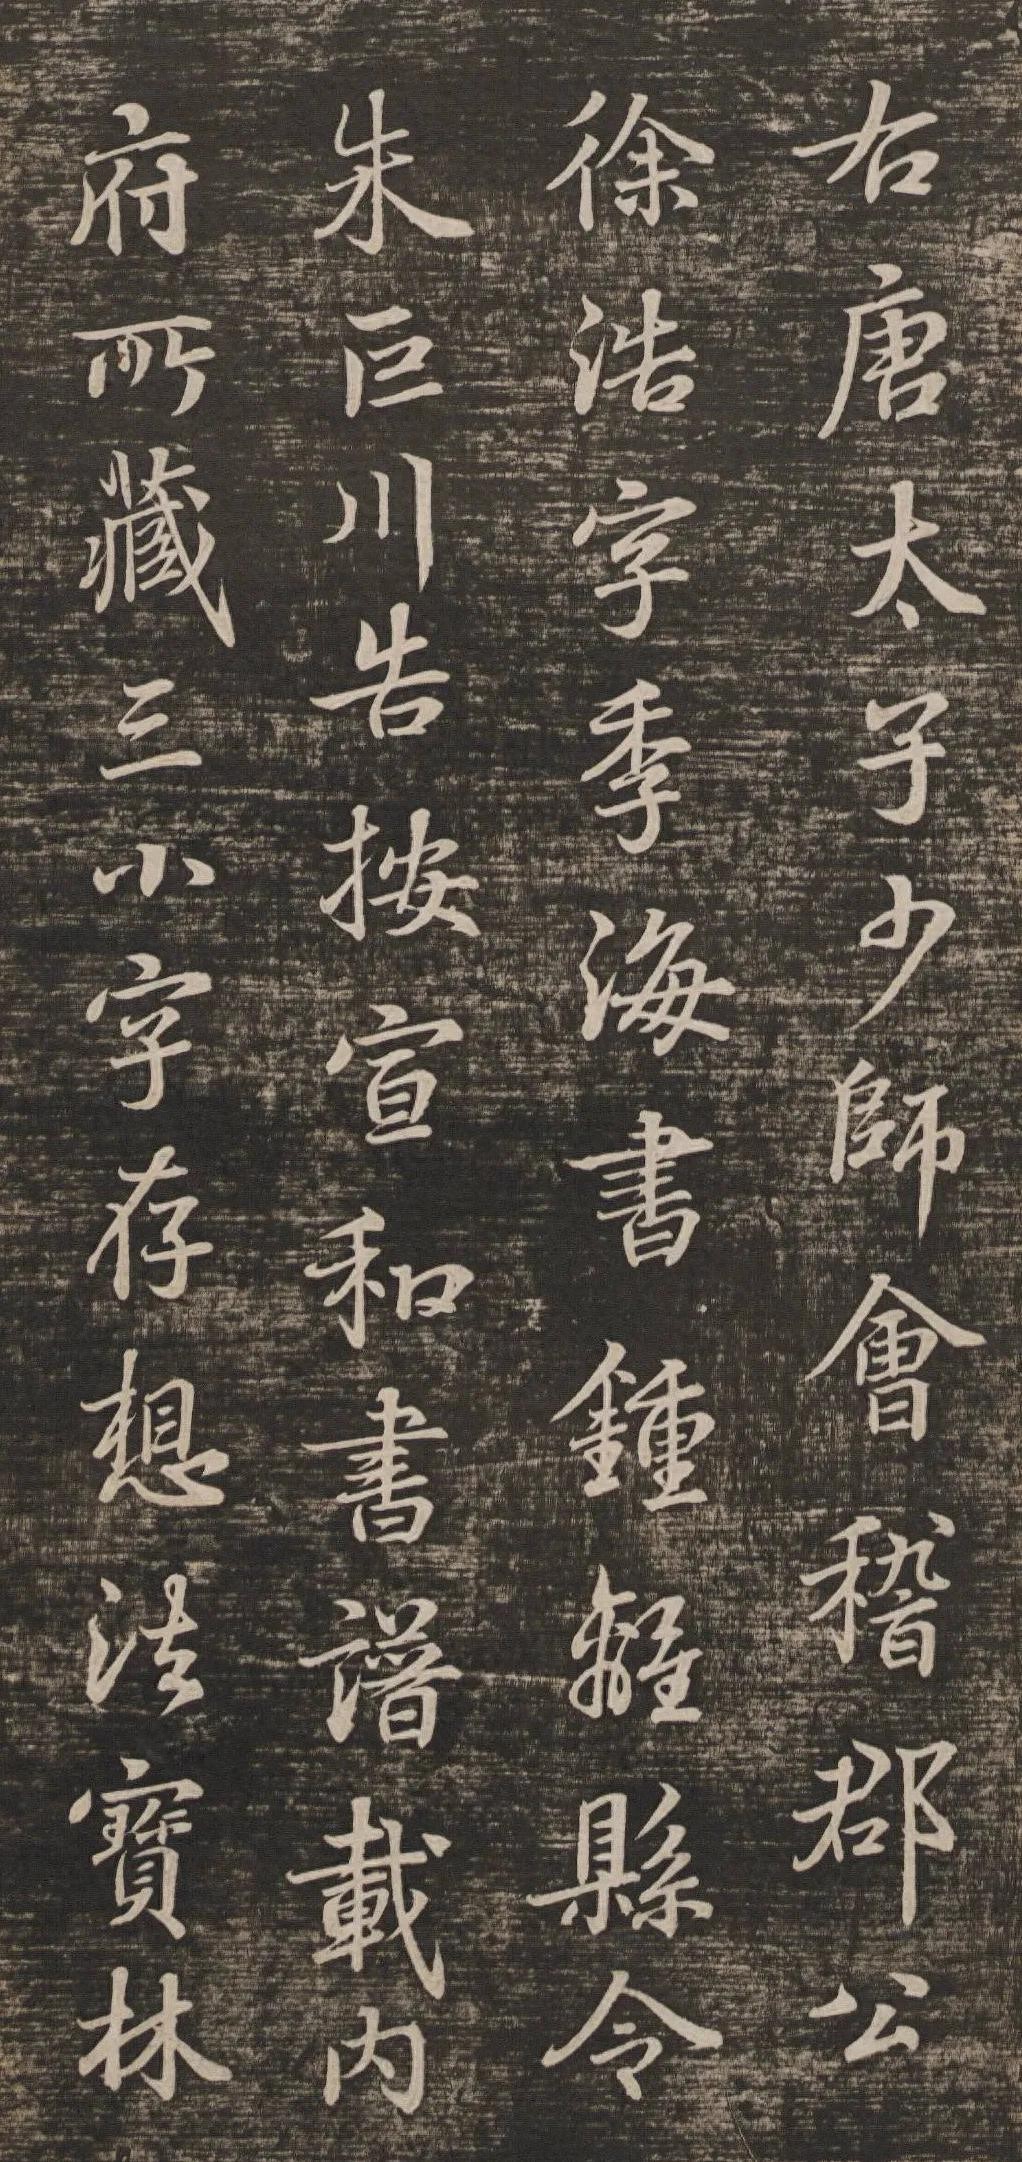 右唐太子少師會稽郡公
徐浩字季海書鍾離縣令
朱巨川告按宣和書譜載內
府所藏三小字存想法寶林